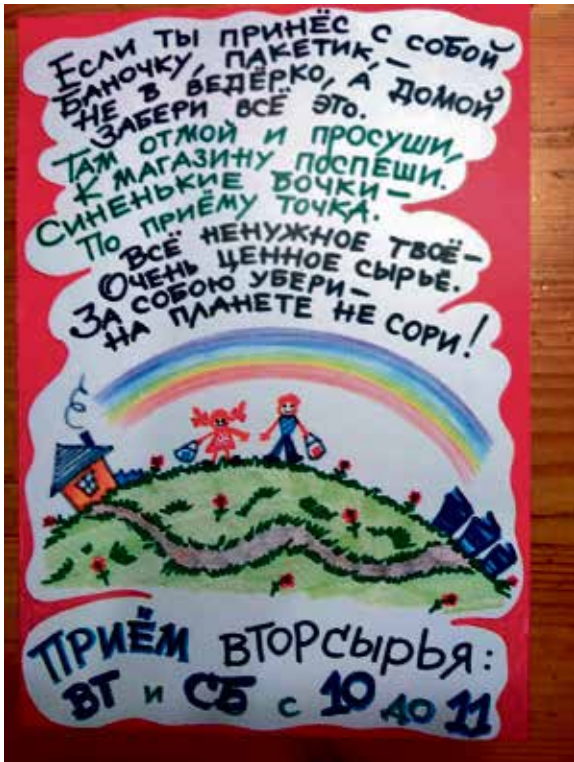 Если ты принёс с собой
Баночку, пакетик, –
Не в ведёрко, а домой
Забери всё это.
Там отмой и просуши,
К магазину поспеши.
Синенькие бочки –
По приёму точка.
Всё ненужное твоё –
Очень ценное сырьё.
За собою убери –
На планете не сори!
Приём вторсырья:
ВТ и СБ с 10 до 11